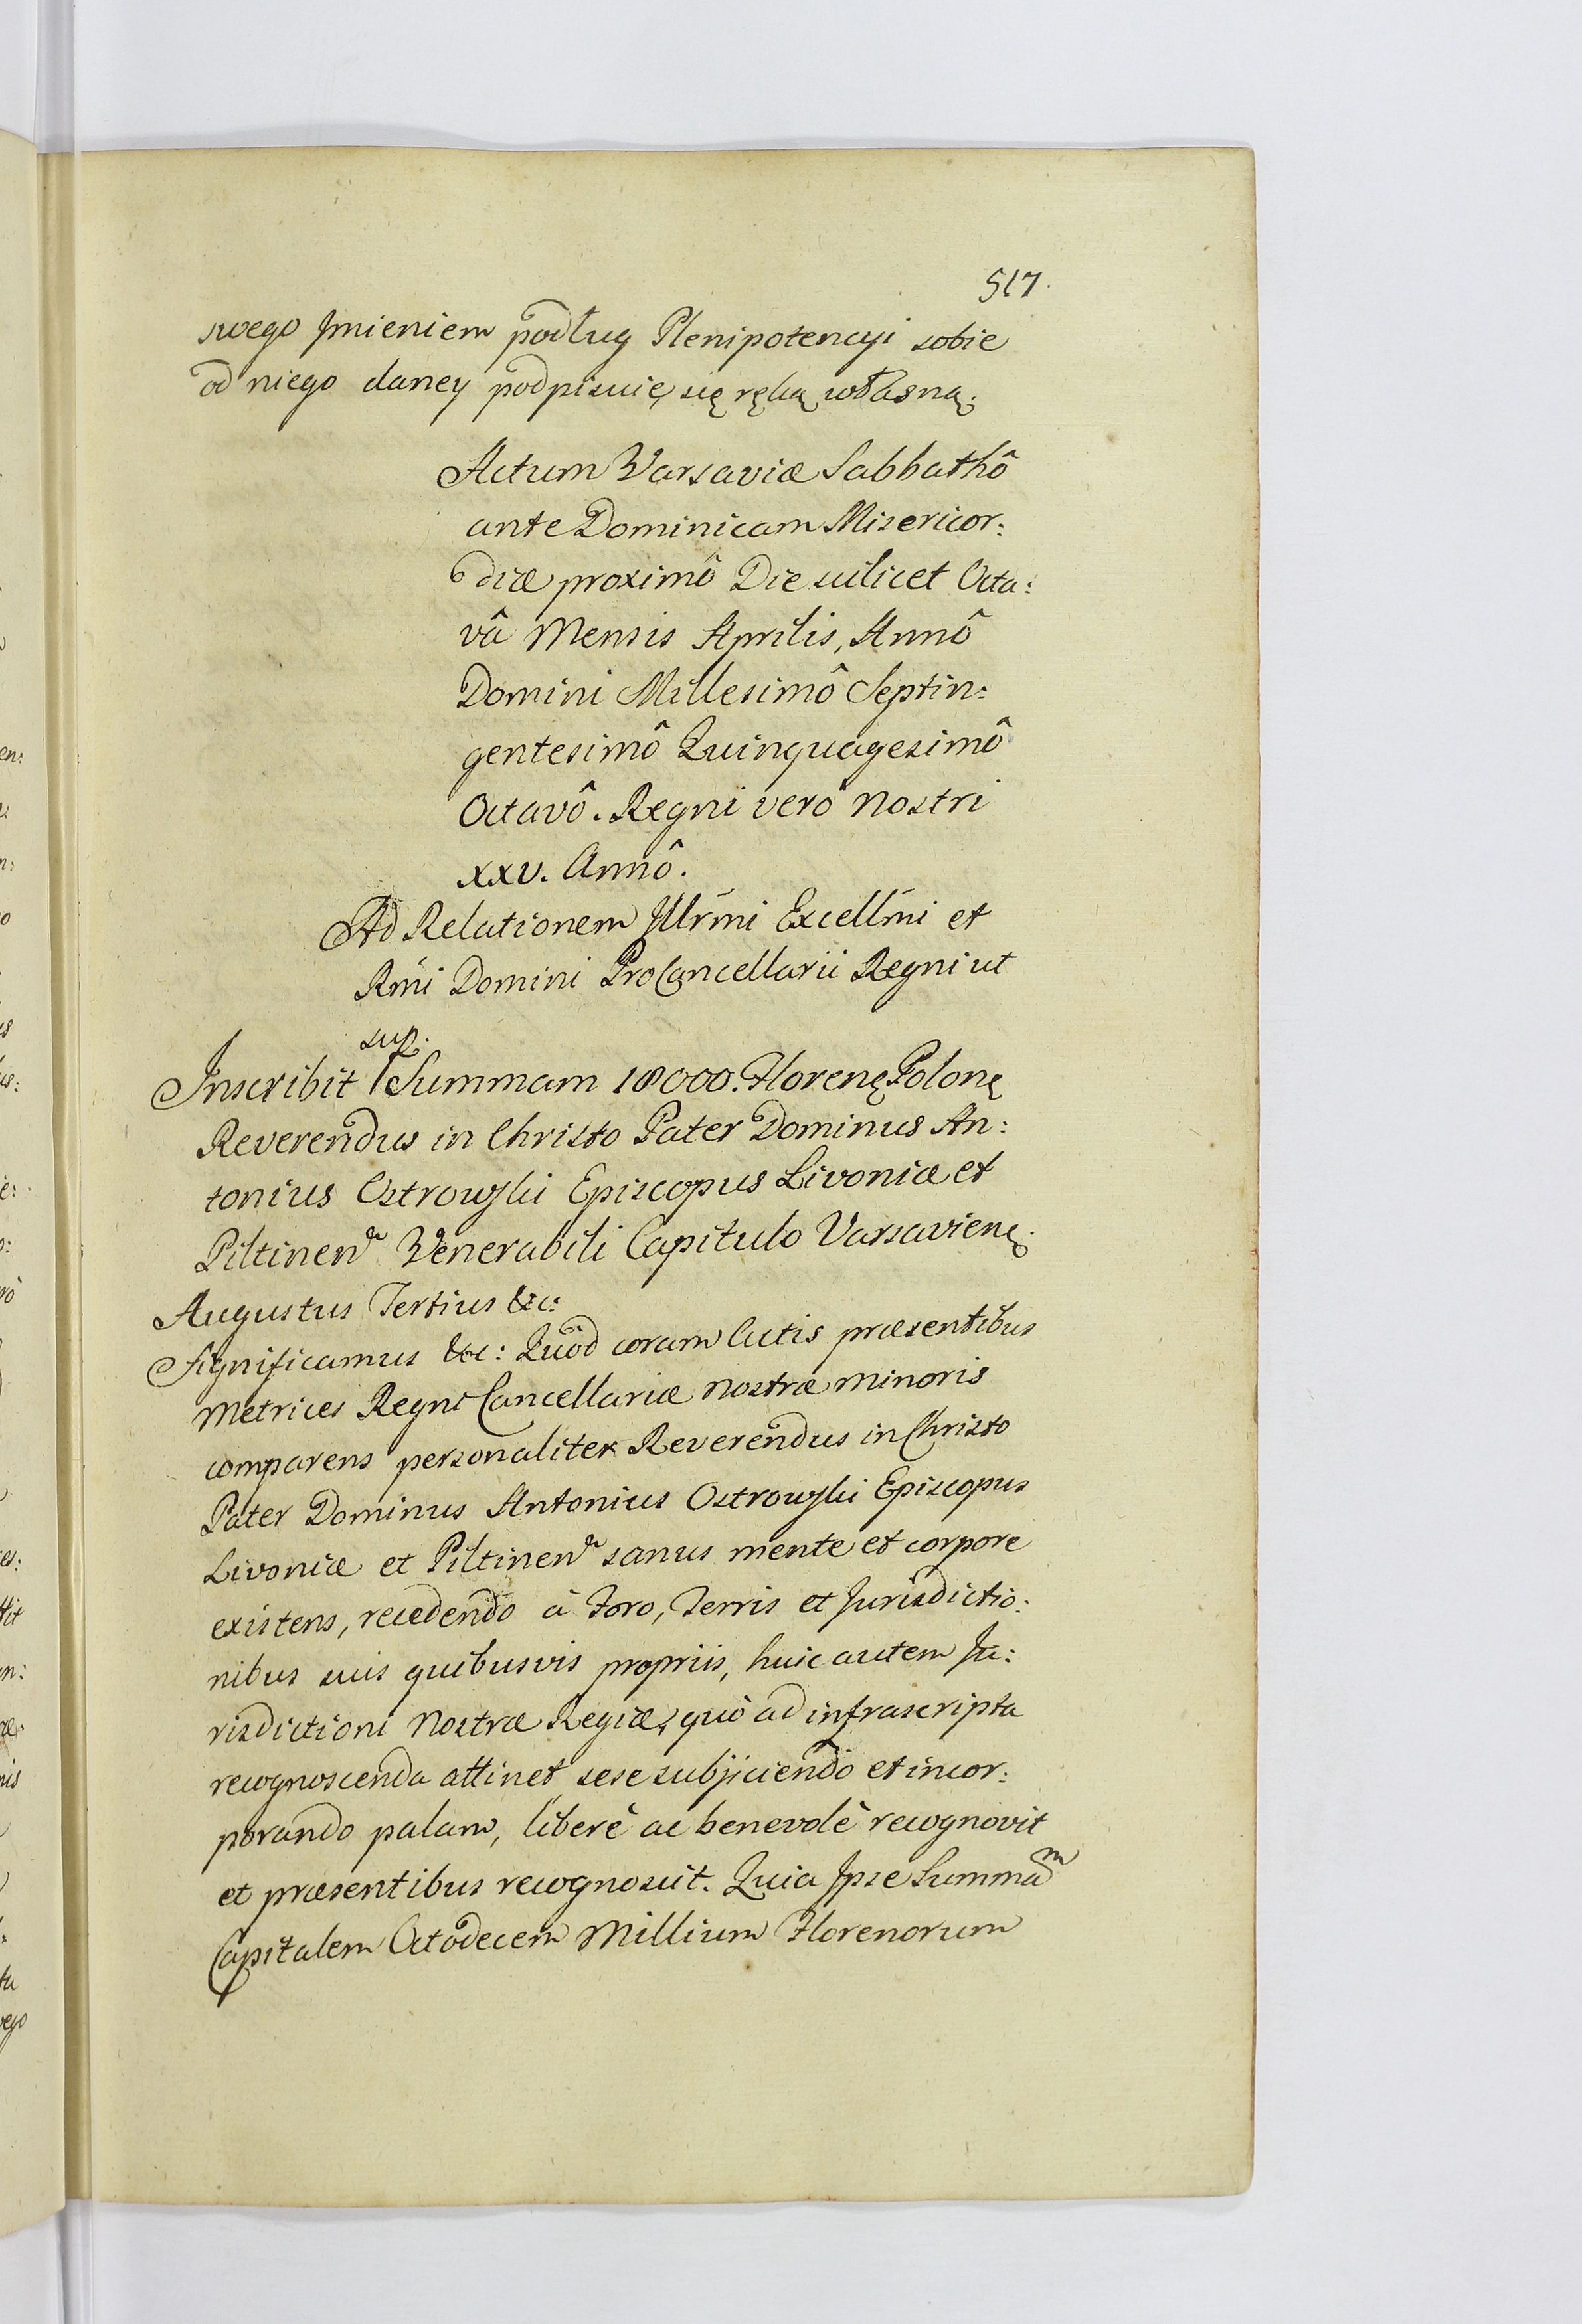 517.
swego Jmieniem podług Plenipotencyi sobie
od niego daney podpisuię się ręką własną.
Actum Varsaviæ Sabbathô
ante Dominicam Misericor:
diæ proximô Die scilicet Octa:
vâ Mensis Aprilis, Annô
Domini Millesimô Septin:
gentesimô Quinquagesimô
Octavô. Regni verò Nostri
XXV. Annô.
Ad Relationem Illr̃mi Excellm̃i et
Rm̃i Domini ProCancellarii Regni ut
sup.
Inscribit Summam 18000. Florenę Polonę
Reverendus in Christo Pater Dominus An:
tonius Ostrowski Episcopus Livoniæ et
Piltinen̄ Venerabili Capitulo Varsavienę.
Augustus Tertius &c:
Significamus &c: Quòd coram Actis præsentibus
Metrices Regni Cancellariæ Nostræ Minoris
comparens personaliter Reverendus in Christo
Pater Dominus Antonius Ostrowski Episcopus
Livoniæ et Piltinen̄ sanus mente et corpore
existens, recedendo à Foro, Terris et Jurisdictio:
nibus suis quibusvis propriis, huic autem Ju:
risdictioni Nostræ Regiæ, quò ad infrascripta
recognoscenda attinet sese subjiciendo et incor:
porando palam, liberè ac benevolè recognovit
et præsentibus recognoscit. Quia Ipse Summam
Capitalem Octodecem Millium Florenorum